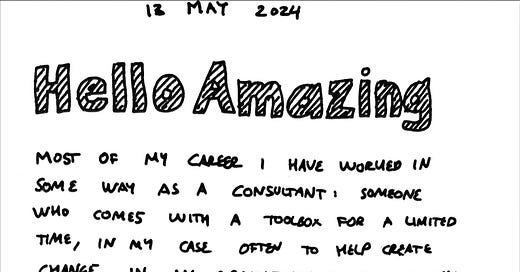 13 MAY 2024
Hello Amazing
MOST OF MY CAREER I HAVE WORKED IN
SOME WAY AS A CONSULTANT: SOMEONE
WHO COMES WITH A TOOLBOX FOR A LIMITED
TIME, IN MY CASE OFTEN TO HELP CREATE
CHANGE IN